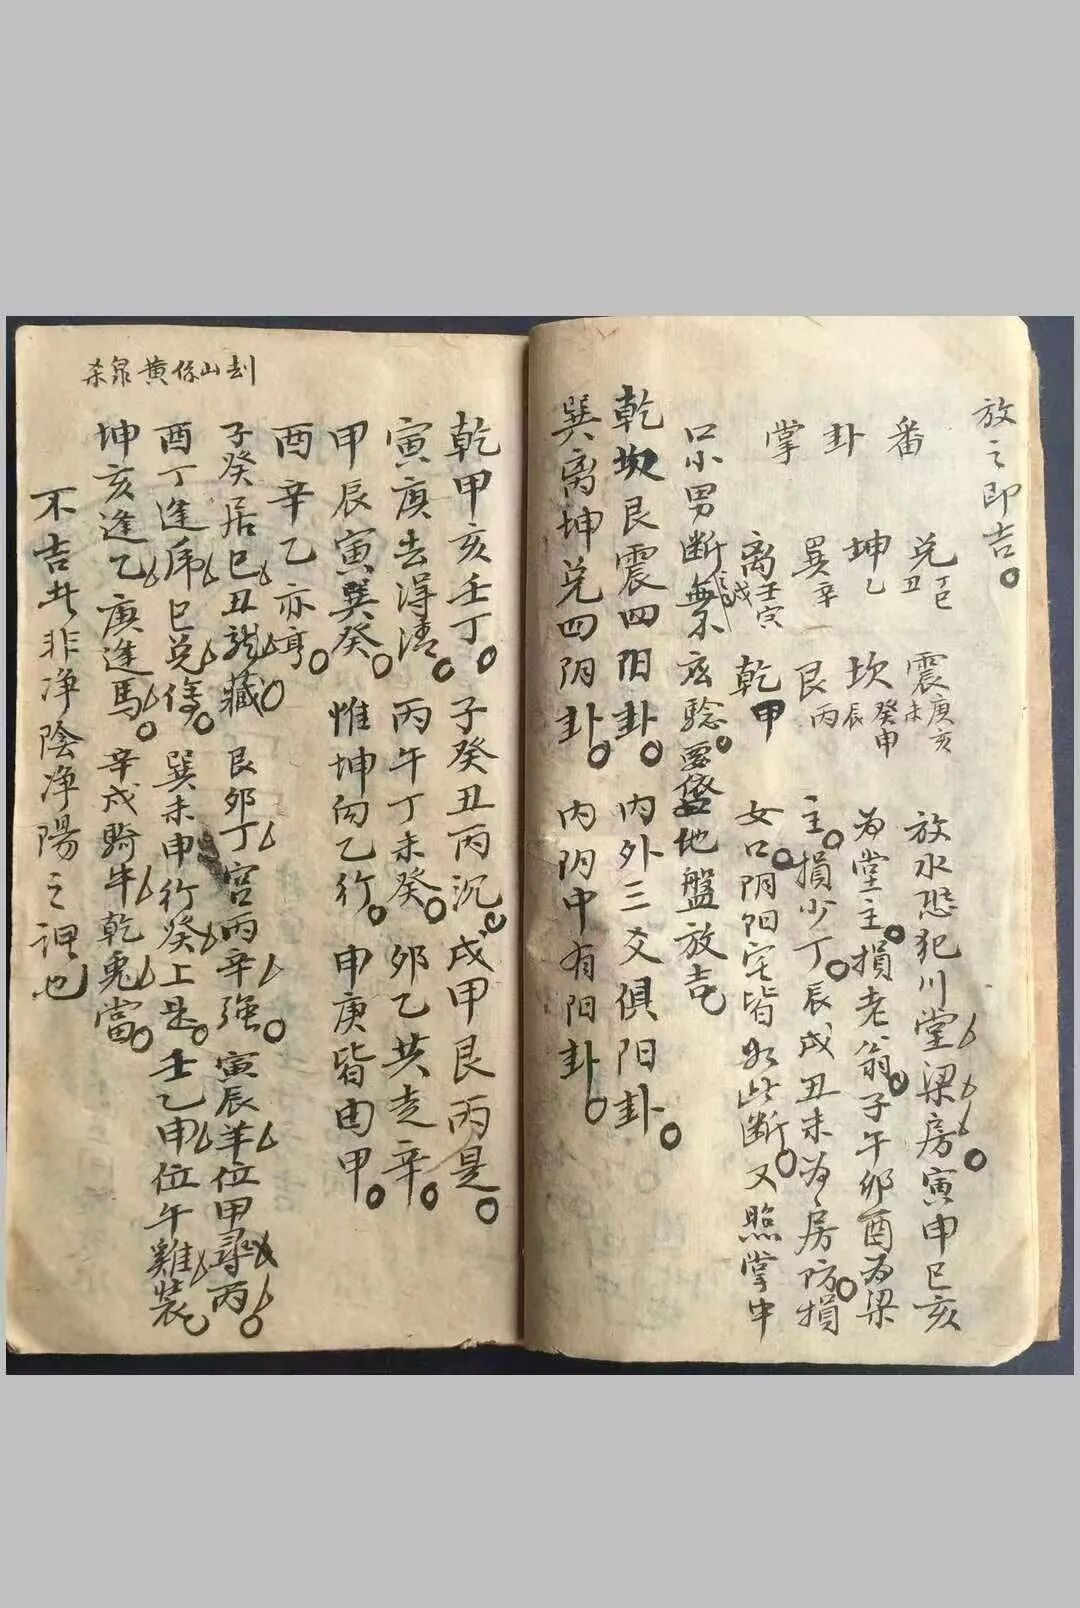 放之即吉
番卦掌
兑丁巳丑 震庚亥未
坤乙 坎癸申辰
巽辛 艮丙
离壬寅戌 乾甲
放水恐犯川堂梁房寅申巳亥
为堂主损老翁子午卯酉为梁
主损少丁辰戌丑未为房防损
女口阴阳宅皆如此断又照掌中
口小男断 应验要 地盤放吉
乾坎艮震四阳卦 内外三爻俱阳卦
巽离坤兑四阴卦 内阴中有阳卦
乾甲亥壬丁 子癸丑丙沉 戌甲艮丙是
寅庚去淂清 丙午丁未癸 卯乙共走辛
甲辰寅巽癸 惟坤向乙行 申庚皆由甲
酉辛乙亦亨
杀泉黄 山刦
子癸居巳丑龙藏 艮卯丁宫丙辛强 寅辰羊位甲尋丙
酉丁逢 巳兑 巽未申行癸上是 壬乙申位午雞装
坤亥逢乙庚逢馬 辛戌騎牛乾兎當
不吉 非净陰净陽之 也